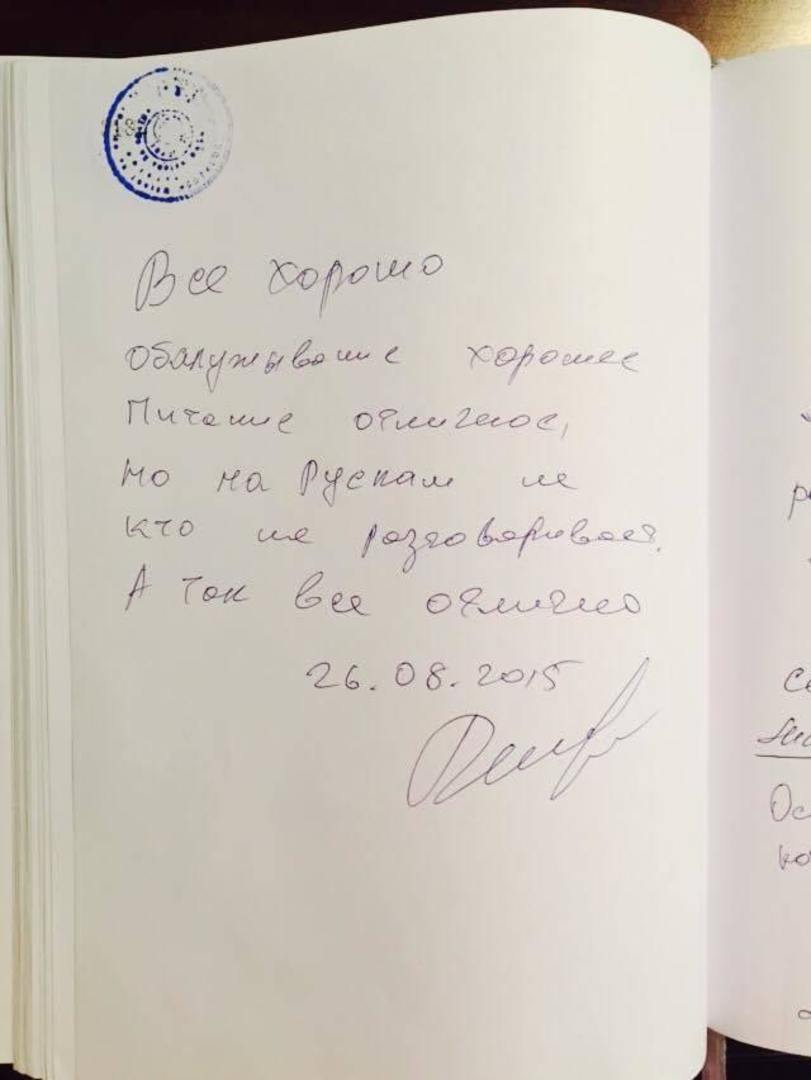 Все хорошо
обалуживание хорошее
Питание отличное,
но на Рускам не
кто не разговаривает.
А так все отлично
26.08.2015